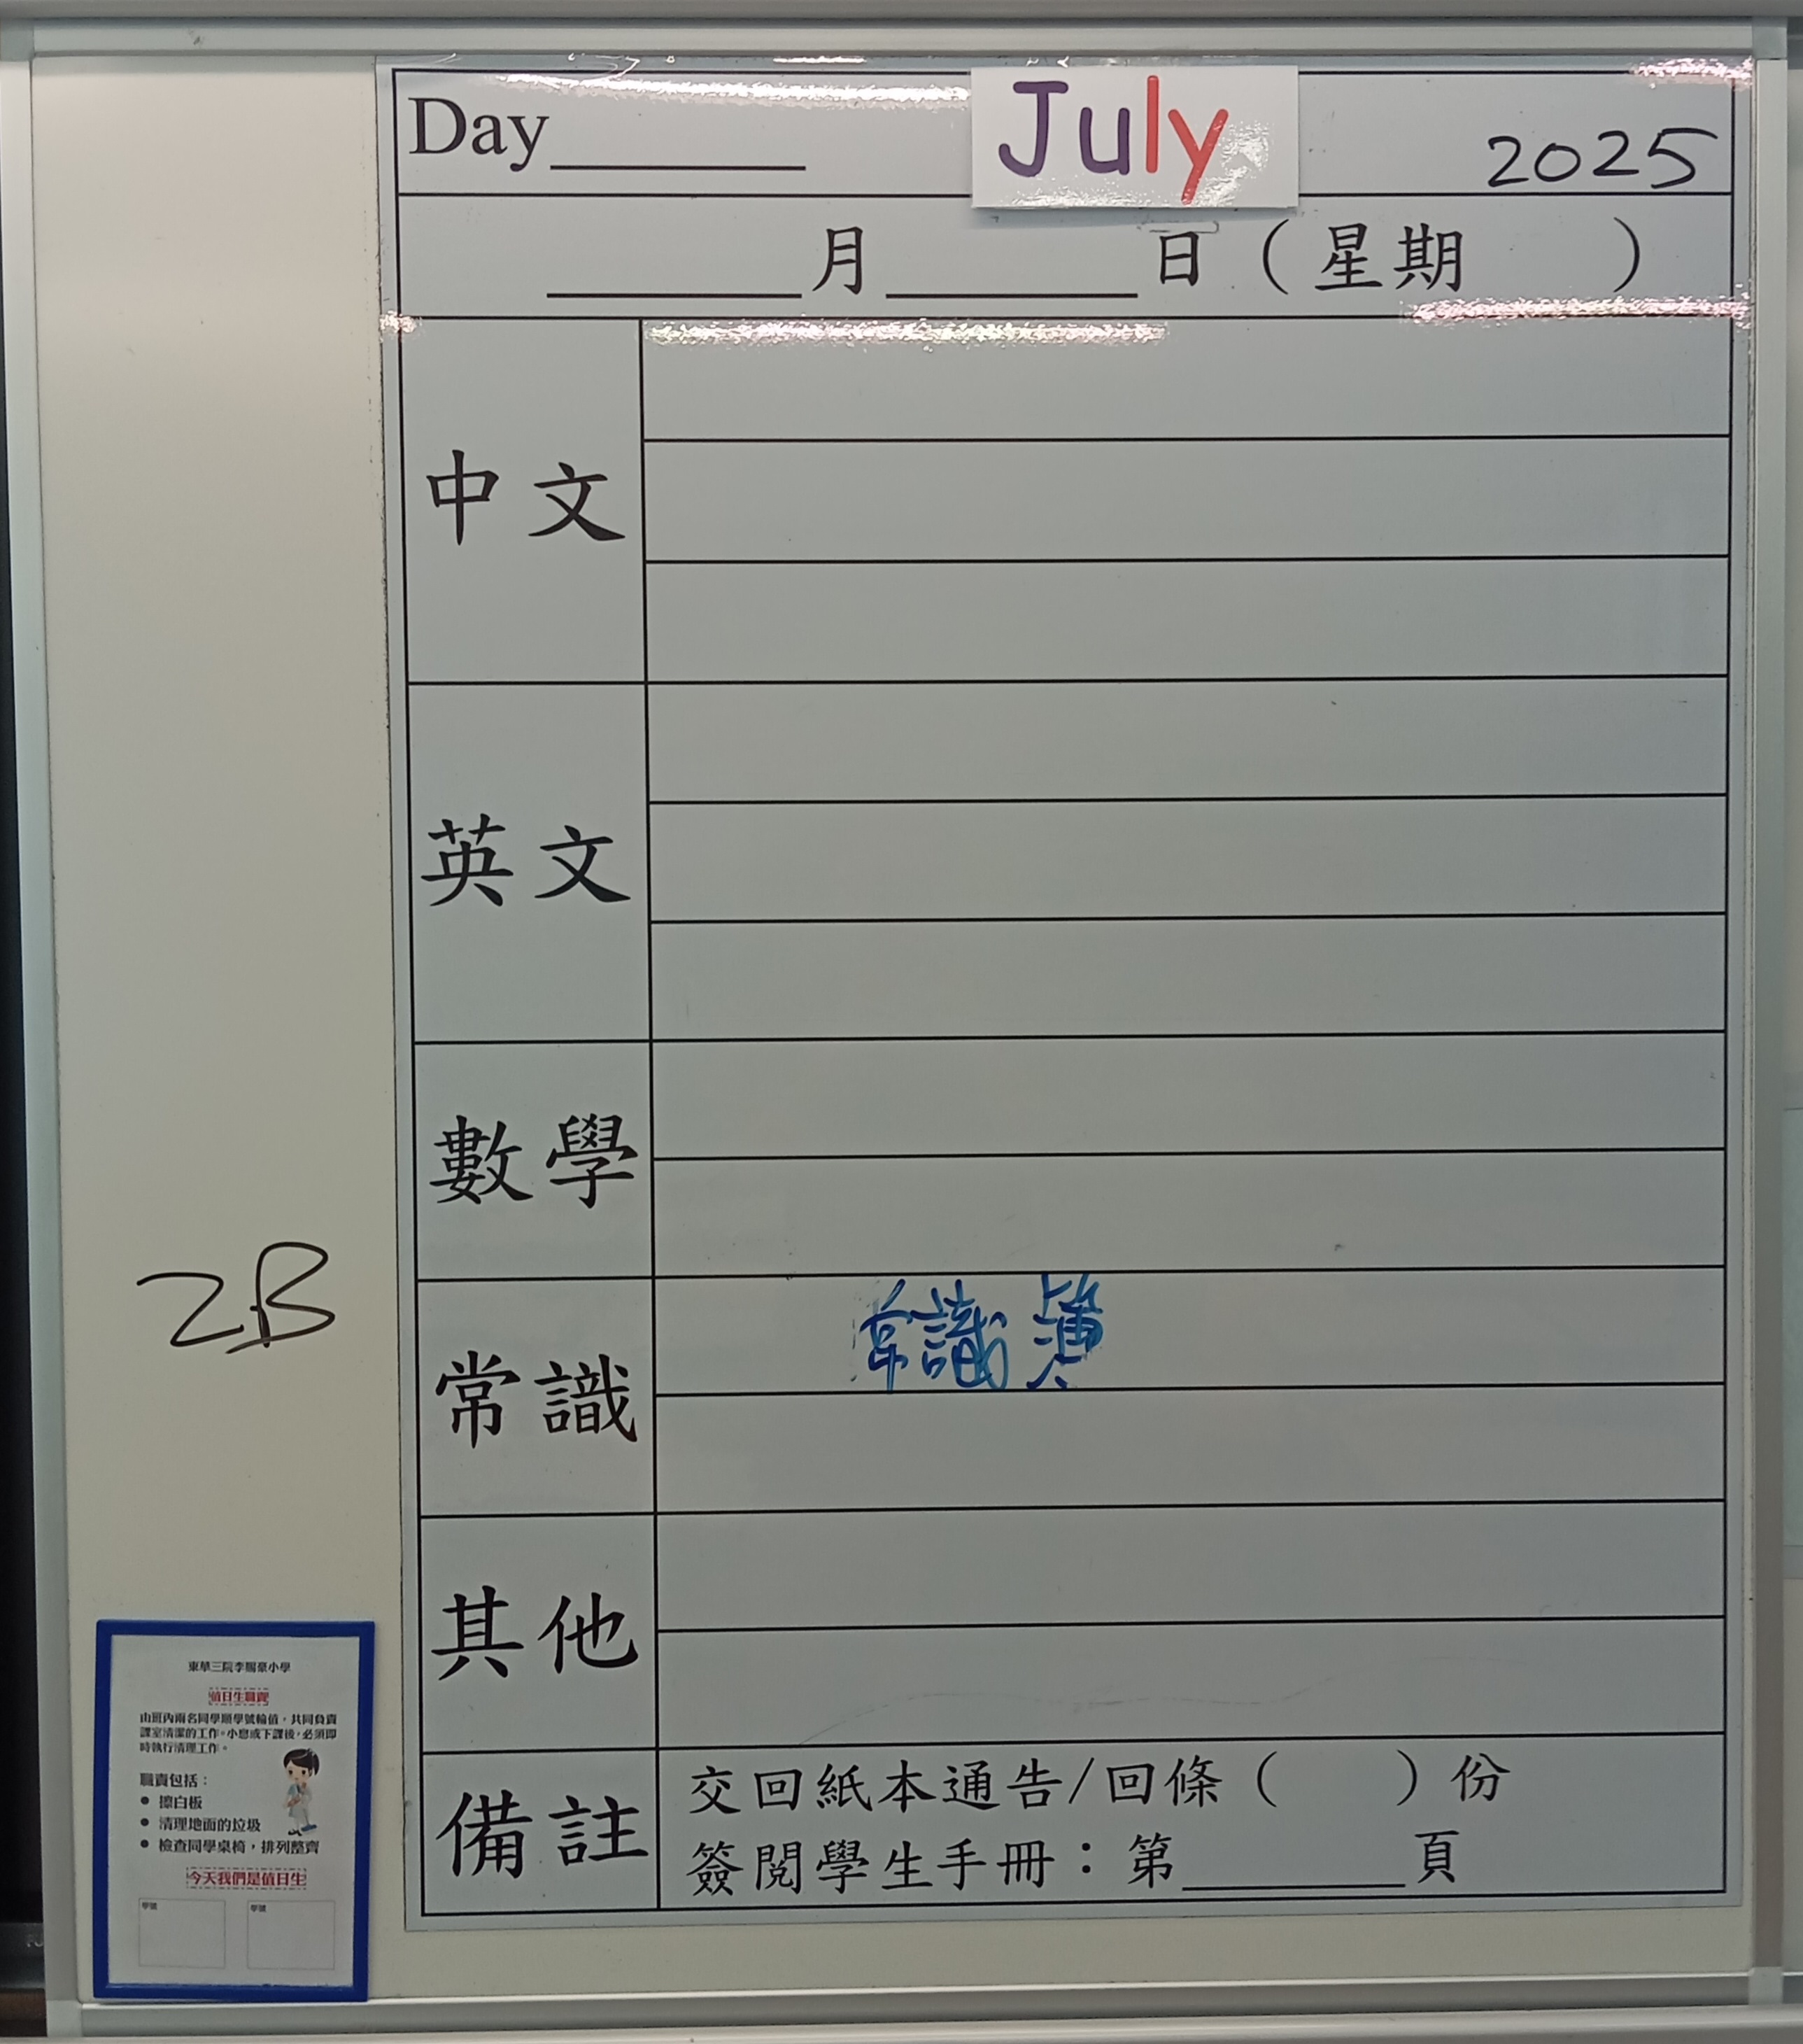 Day______ July 2025
______月______日（星期　　）
中文
英文
數學
常識 常識簿
其他
備註
交回紙本通告/回條（　　）份
簽閱學生手冊：第______頁
2B
東華三院李賜豪小學
值日生職責
由班內兩名同學順學號輪值，共同負責
課室清潔的工作。小息或下課後，必須即
時執行清理工作。
職責包括：
● 擦白板
● 清理地面的垃圾
● 檢查同學桌椅，排列整齊
今天我們是值日生
學號 學號